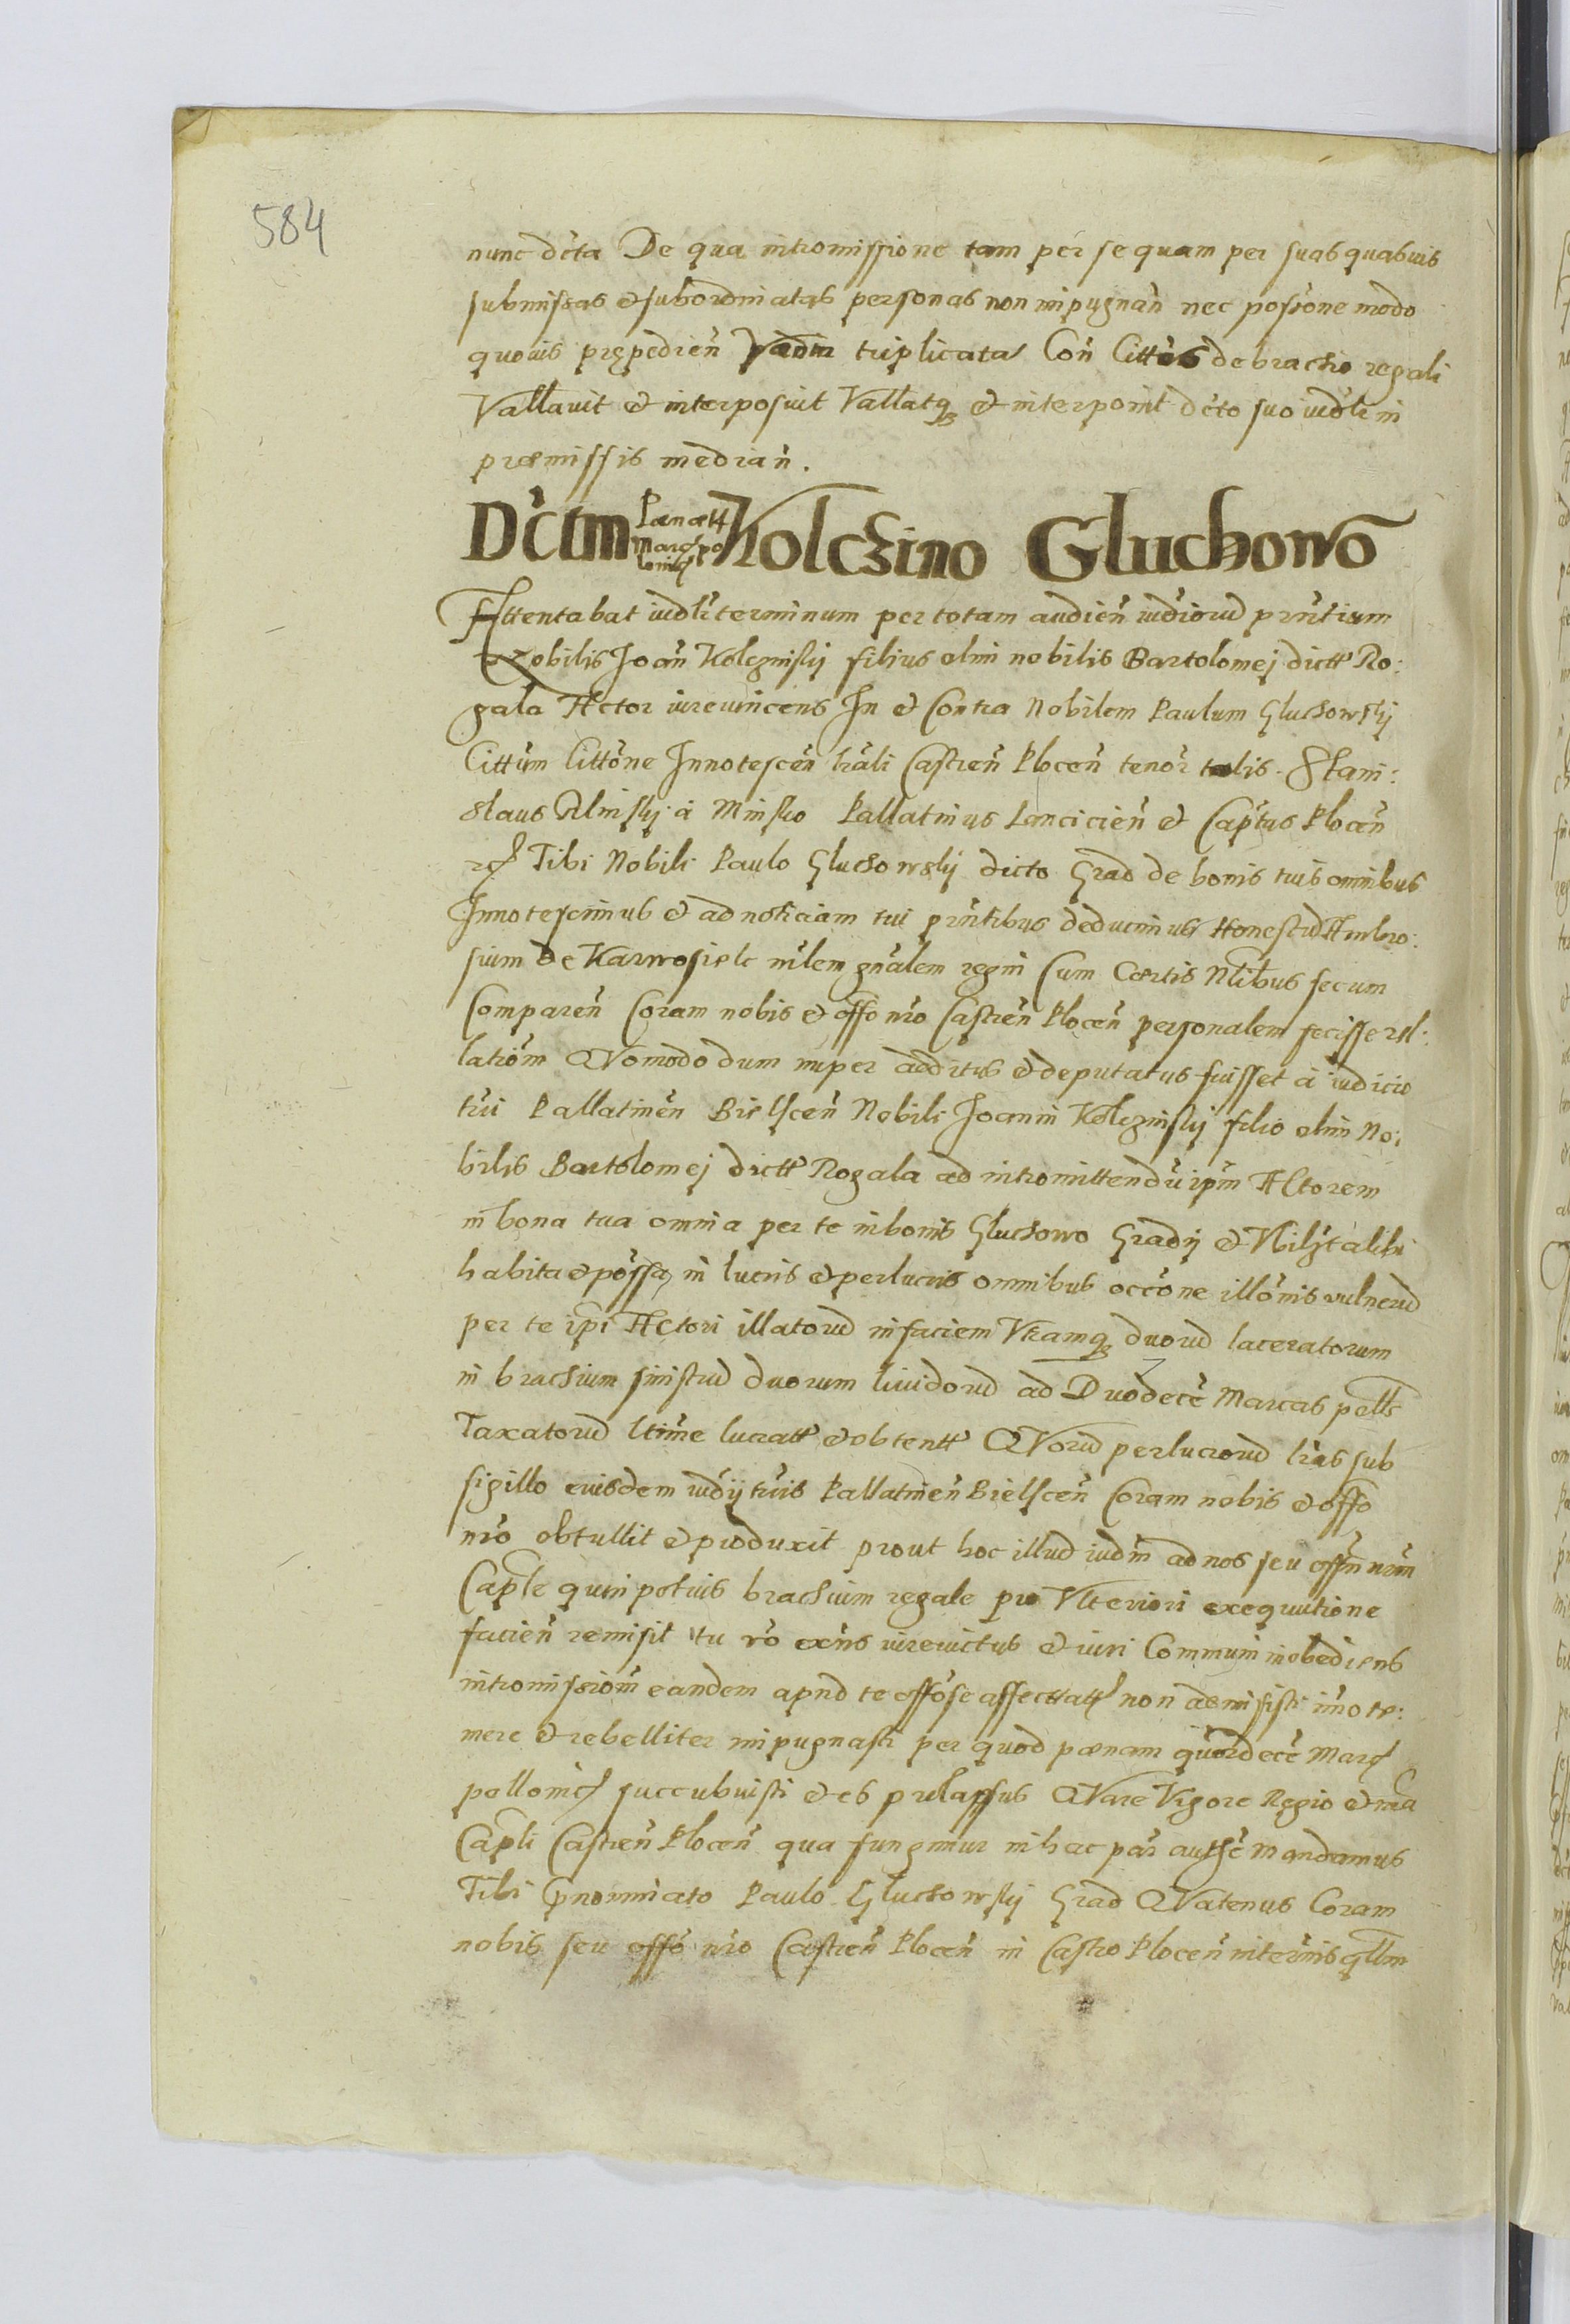 584
nunc dcta De qua intromissione tam per se quam per suas quasuis
submissas et subordinatas personas non impugnan nec possione modo
quouis prępedien Vadm triplicata Con Cittus de brachio regali
Vallauit et interposuit Vallatq et interponit dcto suo iudli in
præmissis median.
Dctm Pænæ Marc polonic Kolczino Gluchowo
Attentabat iudlr terminum per totam audien iudiorum prntium
Nobilis Joan Kolczinskij filius olim nobilis Bartolomej dictt Ro:
gala Actor iureuincens In et Contra Nobilem Paulum Gluchowskij
Cittum Cittone Innotescen lrali Castren Plocen tenor talis. Stani:
slaus Minskij à Minsko Pallatinus Lancicien et Captus Plocen
rc Tibi Nobili Paulo Gluchowskij dicto Grad de bonis tuis omnibus
Innotescimus et ad noticiam tui prntibus deducimus Honestum Ambro:
sium de Karwosieke mlem gnalem regni Cum Certis Nlibus secum
Comparen Coram nobis et offo nro Castren Plocen personalem fecisse rel:
lationm QVomodo dum nuper additus et deputatus fuisset à iudicio
trri Pallatinen Bielscen Nobili Joanni Kolczinskij filio olim No:
bilis Bartolomej dictt Rogala ad intromittendu ipm Actorem
in bona tua omnia per te in bonis Gluchowo Gradij et Vbilzt alibi
habita et possa in lucris et perlucris omnibus occone illonis vulnerum
per te ipi Actori illatorum in faciem Vtramq duorum laceratorum
in brachium sinistrum duorum liuidorum ad Duodece Marcas pells
Taxatorum ltime lucratt et obtentt QVorum perlucrorum lras sub
sigillo eiusdem iudij trris Pallatinen Bielscen Coram nobis et offo
nro obtullit et produxit prout hoc illud iudm ad nos seu offm nrm
Caple quin potius brachium regale pro Vlteriori exequutione
facien remisit tu ro exns iureuictus et iuri Communi inobediens
intromissionm eandem apud te offose affecttatt non admisisti imo te:
mere et rebelliter impugnasti per quod pænam quordece Marc
pollonic succubuisti et es prolapsus QVare Vigore Regio et nra
Capli Castren Plocen qua fungimur in hac par authe Mandamus
Tibi prnominato Paulo Gluchowskij Grad QVatenus Coram
nobis seu offo nro Castren Plocen in Castro Plocen in termis qllm